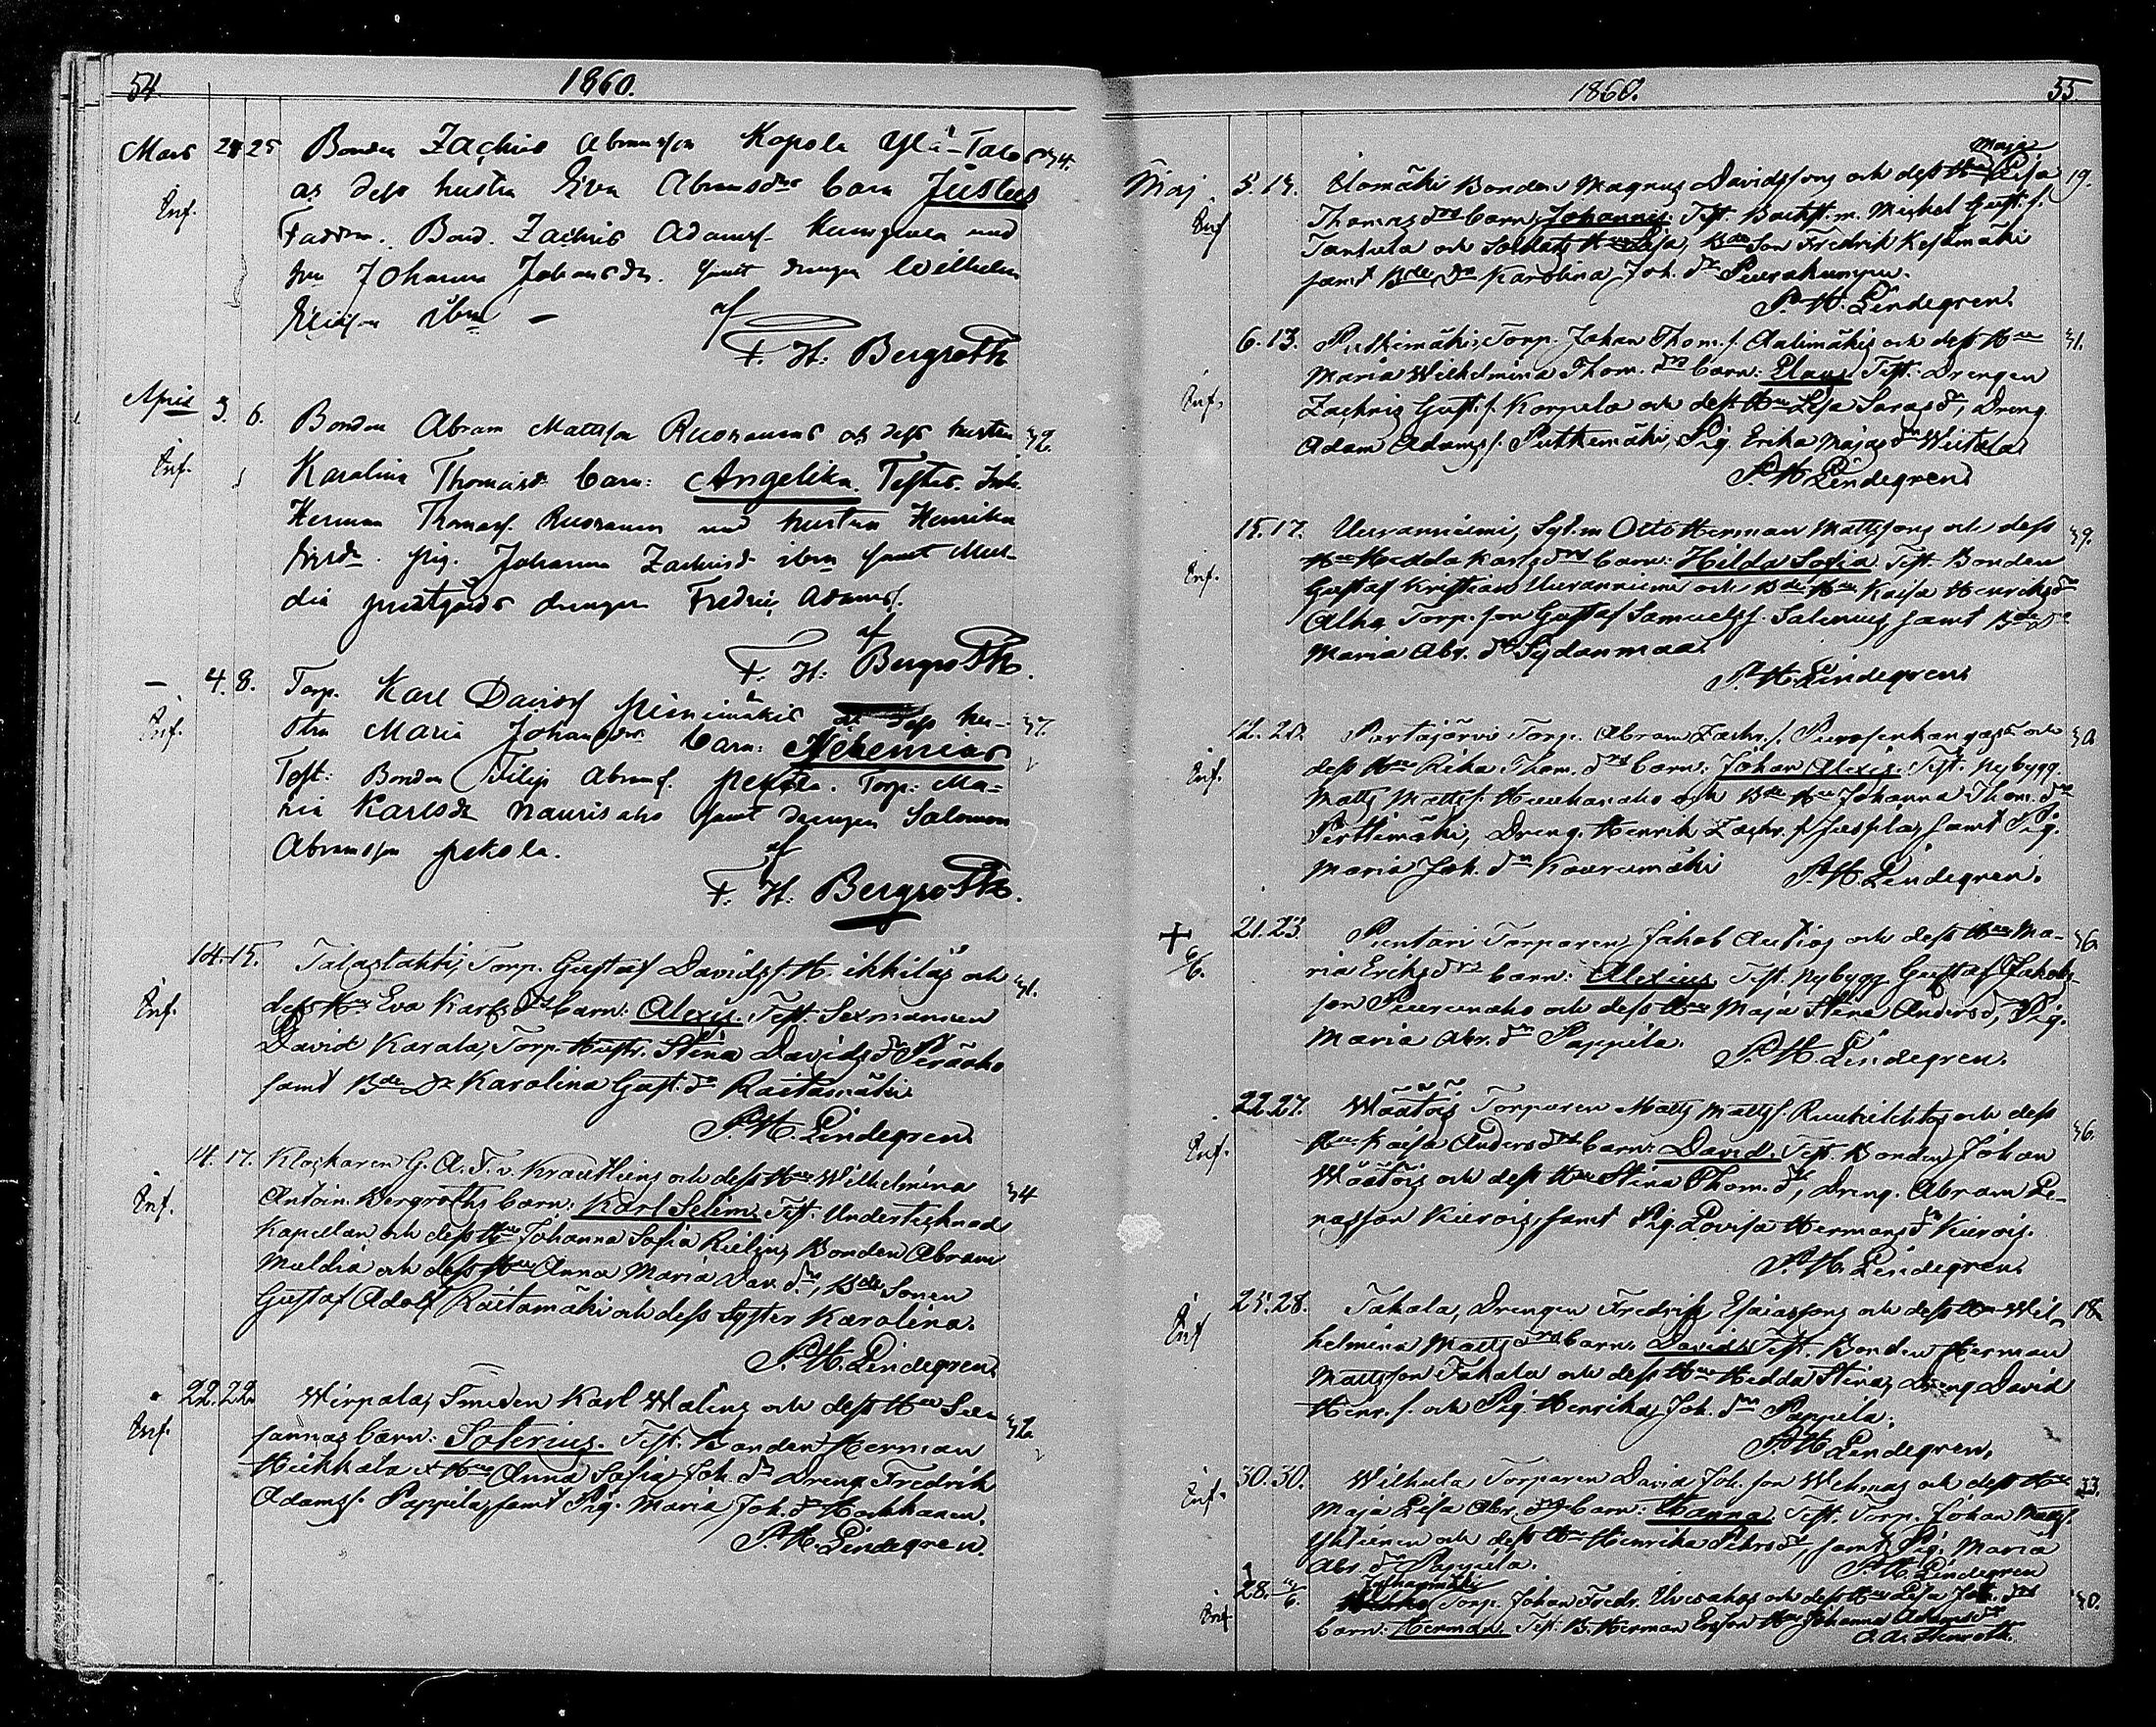 54. 1860.
Mars 24 25 Bonden Zachris Abramsson Kopola Ylä-Talos 34.
Inf. as dess hustru Eva Abramsdrs barn Justus
Faddr. Bond. Zachris Adamsf. und
hu Johanna Johansdr. samt drengen Wilhelm
ibm –
af
F. H. Bergroth
April 3. 6. Bonden Abram Mattsson Ruonanens och dess hustru 32.
Inf. Karolina Thomasdr barn: Angelika. Testes. Inh.
Herman Thomasf. Ruonanen und hustru Henrika
pig. Johanna Zachrisdr ibm samt Mul-
dia prestgårds drengen Fredric Adamsf.
af
F. H. Bergroth.
– 4. 8. Torp. Karl Davidsf Pienimäkis och dess hu- 37.
Inf. stru Maria Johansdrs barn: Nehemias
Test: Bonden Filip Abramsf. Pekola. Torp: Ma-
ria Karlsdr Naurisaho samt drengen Salomon
Abramsson Pekola.
af
F. H. Bergroth.
14. 15. Talastahti, Torp. Gustaf Davidsf. Heikkiläs och 31.
Inf. dess Hu Eva Karlsdrs barn: Alexis. Test: Sexmannen
David Karala, Torp. Hustr. Stina Davidsdr Peräaho
samt Bde Dr Karolina Gust. dr Raitamäki.
P. H. Lindegren.
14. 17. Klockaren G. A. T. v. Krauthins och dess Hu Wilhelmina 34
Inf. Antoin. Bergroths barn: Karl Selim. Test. Undertecknad
Kapellan och dess Hu Johanna Sofia Rielin, Bonden Abram
Muldia och dess Hu Anna Maria Dav. dr, Bde Sonen
Gustaf Adolf Raitamäki och dess Syster Karolina.
P. H. Lindegren.
22. 22. Wirpala, Smeden Karl Walins och dess Hu Su- 32
Inf. sannas barn: Soterius. Test: Bonden Herman
Heikkala & Hu Anna Sofia Joh. dr Dreng. Fredrik
Adamsf. Pappila, samt Pig. Maria Joh. dr Hokkanen.
P. H. Lindegren.
1860. 55.
Maja
Maj 5. 13. Uomäki Bonden Magnus Davidssons och dess Hu Lisa 19.
Inf Thomasdrs barn: Johannes. Test. Backst. m. Michel Gust. f.
Tanhula och Soldats Hu Lisa, Bde Son Fredrik Keskimäki
samt Bde Dr Karolina Joh. dr Peurakumpu.
P. H. Lindegren.
6. 13. Putkimäki, Torp. Johan Thom. f. Aalimäkis och dess Hu 31.
Inf. Maria Wilhelmina Thom. drs barn: Elaus. Test: Drengen
Zachris Gust. f. Korpela och dess Hu Lisa Sarasdr, Dreng.
Adam Adamsf. Putkimäki, Pig. Erika Majasdr Wiitala
P. H. Lindegren.
15. 17. Uuranniemi, Syt.m Otto Herman Mattssons och dess 39.
Inf. Hu Hedda Karlsdrs barn: Hilda Sofia. Test. Bonden
Gustaf Kristian Uuranniemi och Bde Hu Kaisa Henriksdr
Alho, Torp. son Gustaf Samuelsf. Salenius, samt Bde Dr
Maria Abr. dr Sydanmaa.
P. H. Lindegren.
12. 20. Pertajärvi Torp. Abram Zachr. f. och 30
Inf. dess Hu Rika Thom. drs barn: Johan Alexis. Test. Nybygg.
Matts Mattsf. och Bde Hu Johanna Thom. dr
Perttimäki, Dreng. Henrik Zachr. f. Juspila, samt Pig.
Maria Joh. dr Kauramäki P. H. Lindegren.
+ 21. 23. Puntari Torparen Jakob Autios och dess Hu Ma- 36
6/6. ria Eriksdrs barn: Alexius. Test. Nybygg. Gustaf Jakobs-
son Peuramaho och dess Hu Maja Stina Andersdr, Pig.
Maria Abr. dr Pappila.
P. H. Lindegren.
22. 27. Wäätöis Torparen Matts Mattsf. Ruuhilehtos och dess 36.
Inf. Hu Kaisa Andersdrs barn: David. Test. Bonden Johan
Wäätöis och dess Hu Stina Thom. dr, Dreng. Abram Le-
nasson Kiirois, samt Pig. Lovisa Hermansdr Kiirois.
P. H. Lindegren.
25. 28. Takala, Drengen Fredrik Esaiassons och dess Hu Wil- 18
Inf helmina Mattsdrs barn: David. Test. Bonden Herman
Mattsson Takala och dess Hu Hedda Stina, Dreng David
Henr. f. och Pig. Henrika Joh. dr Pappila.
P. H. Lindegren.
30. 30. Wilhula Torparen David Joh. son Wehmas och dess Hu 33.
Inf. Maja Lisa Abr. drs barn: Hanna. Test. Torp. Johan Mattsf.
Yhtinen och dess Hu Henrika Pehrsdr, samt Pig. Maria
Abr. dr Pappila. P. H. Lindegren
28. 6. Torp. Johan Fredr. Uurahos och dess Hu Lisa Joh. drs 30.
Inf barn: Herman. Test. B. Herman Ersson Hu Johanna Adamsdr
A. A. Stenroth.